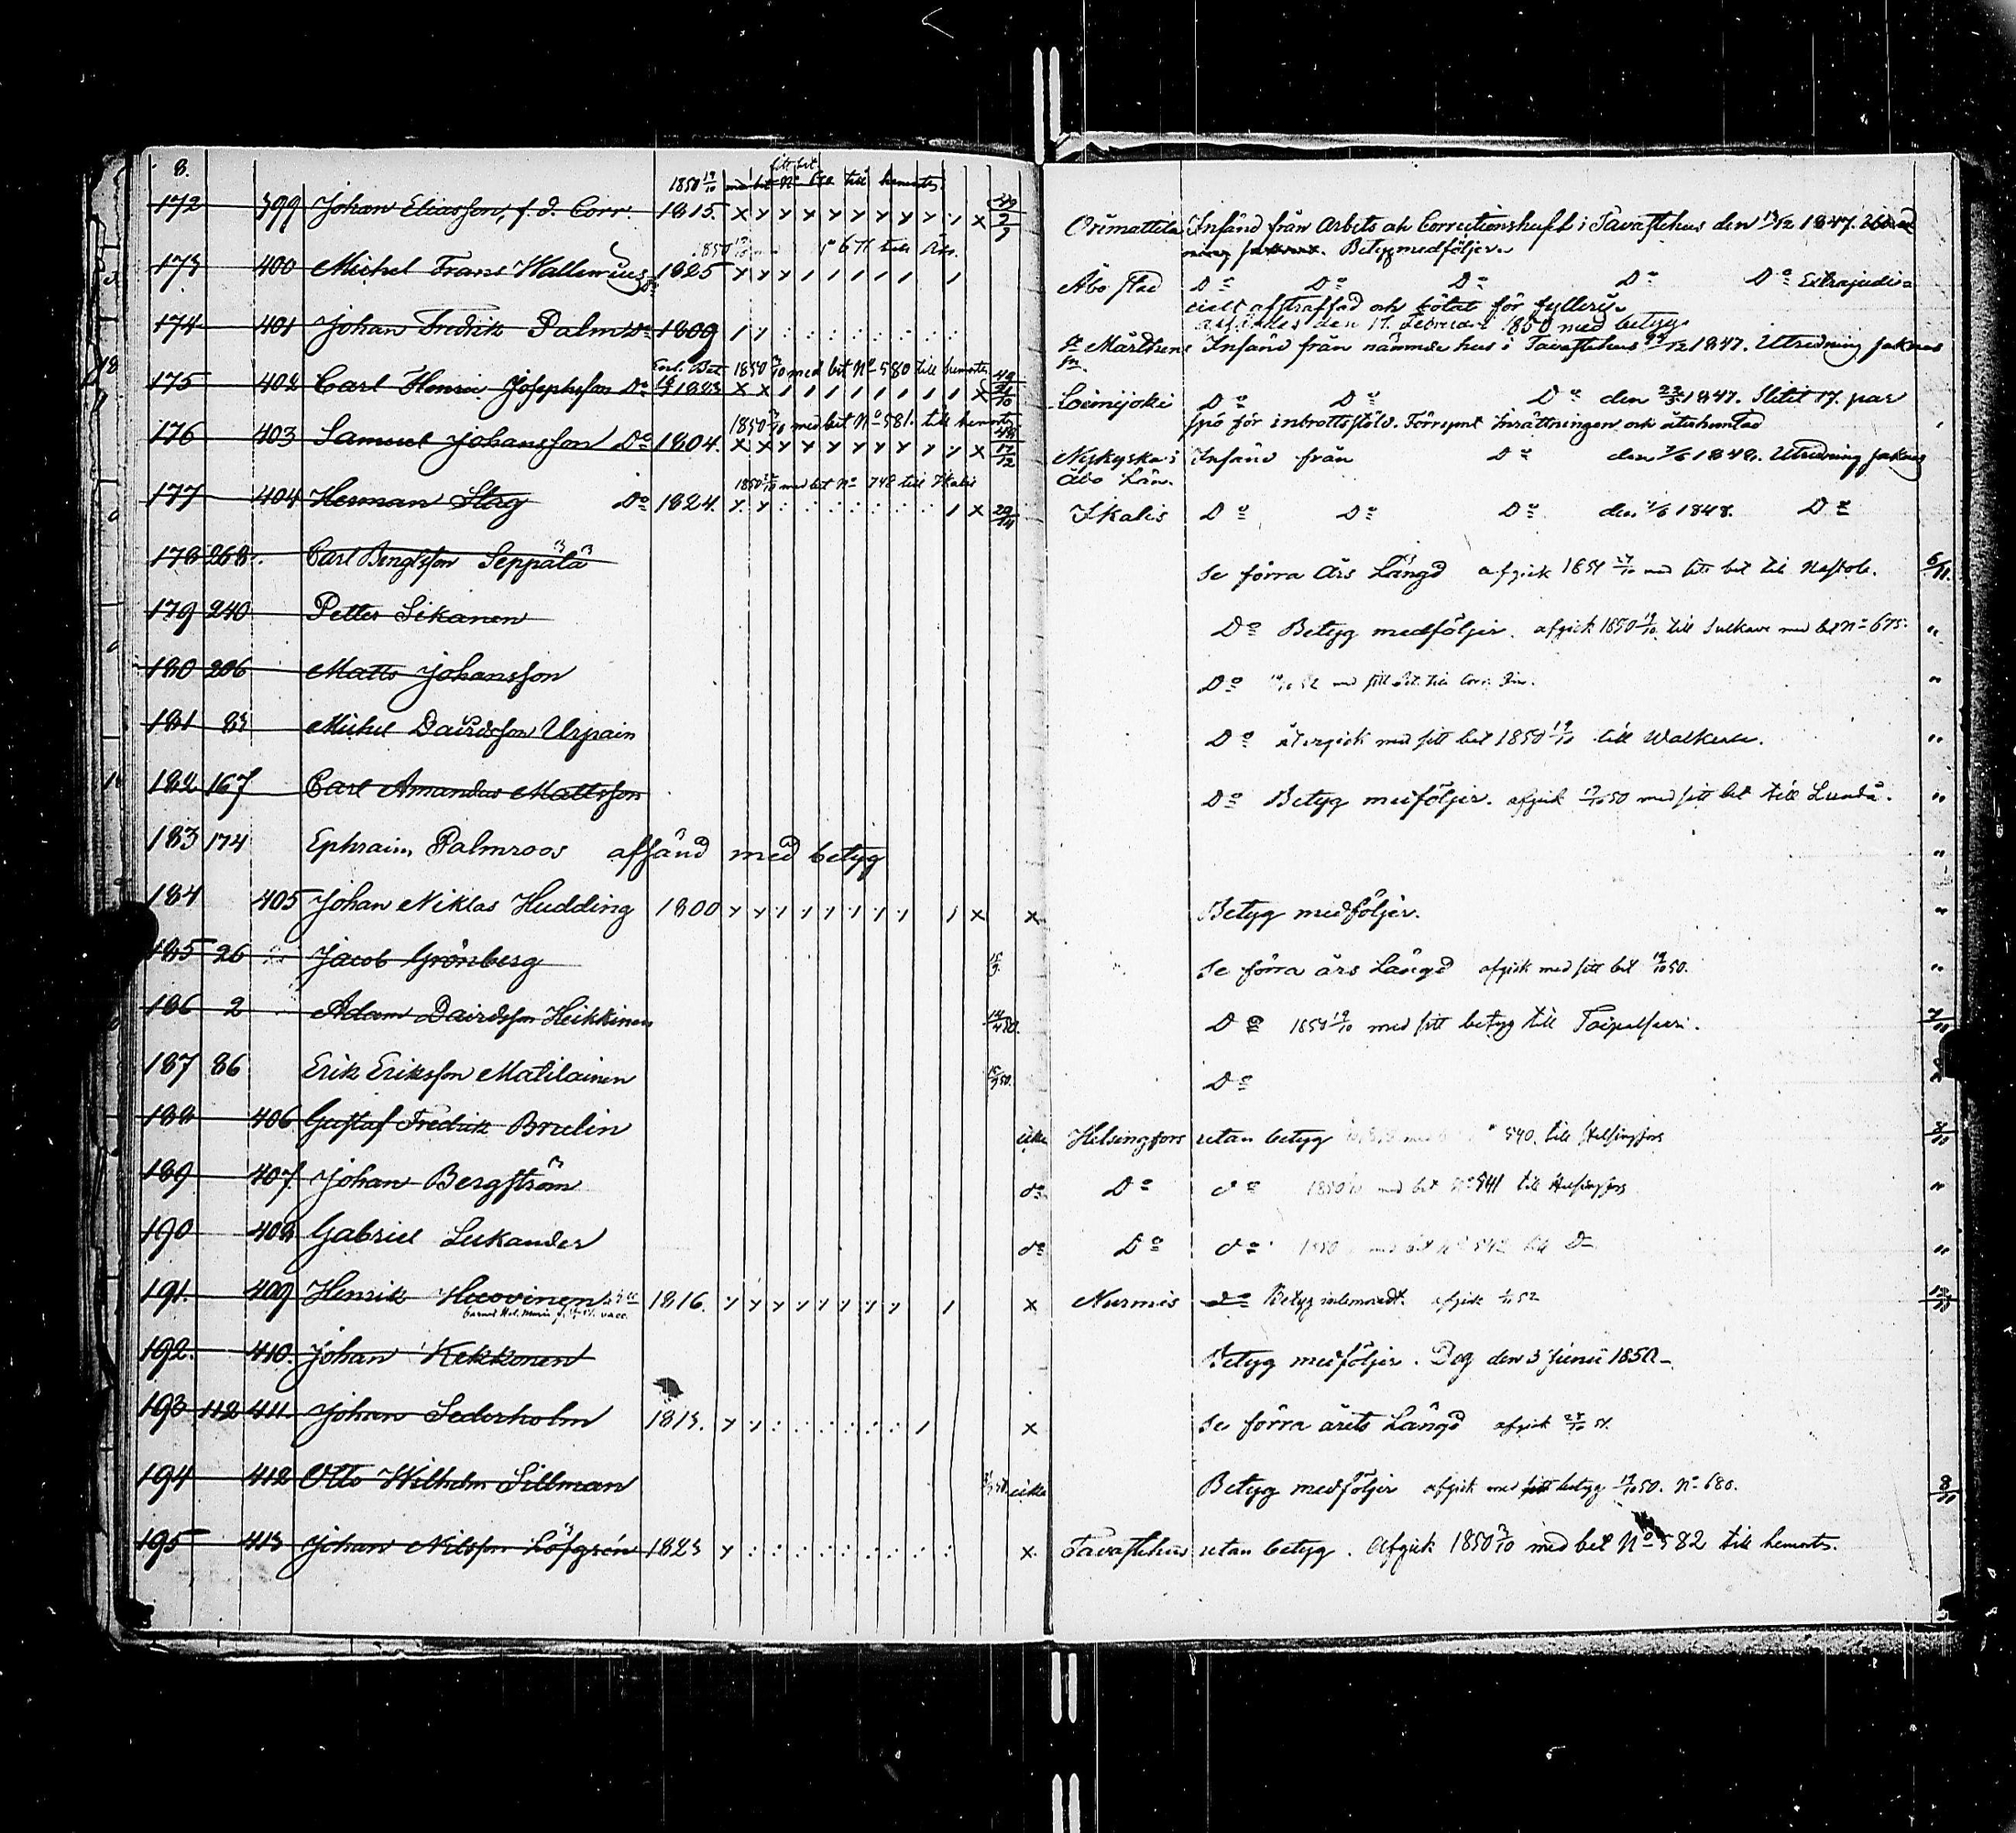 8.
1850 19/10 med bet No till hemorts
172 399 Johan Eliasson, f. d. Corr. 1815. Orimattila Insänd från Arbets och Correctionshuset i Tavastehus den 13/12 1847.
Betyg medföljer.
1850 till Åbo.
173 400 Michel Frans Wallenius Do 1825 Åbo stad Do Do Do Do Do Extrajudi-
cielt afstraffad och bötat för fylleri
174 401 Johan Fredrik Palm Do 1809 den 17. Februari 1850 med betyg
St Mårthens Insänd från nämnde hus i Tavastehus 1847. Utredning saknas
sn.
1850 3/10 med bet No 580 till hemorts
175 402 Carl Henric Josephsson Do 1823 Loimijoki Do Do Do den 1847. Slitit 17. par
spö för inbrottsstöld. Förrymt Inrättningen och återhemtad
1850 3/10 med bet No 581. till hemorts
176 403 Samuel Johansson Do 1804. 17/12 Nykyrka i Insänd från Do den 7/6 1848. Utredning saknas
Åbo Län.
1850 med bet No 748 till Ikalis
177 404 Herman Stag Do 1824. 29/11 Ikalis Do Do Do den 7/6 1848. Do
178 268. Carl Bengtsson Seppälä Se förra Års Längd afgick med sitt bet till Nastola. 6/11.
179 240 Petter Sikanen Do Betyg medföljer. afgick 1850 19/10. till Sulkava med bet No 675. "
180 206 Matts Johansson Do med sitt bet. till "
181 83 Michel Davidsson Urpain Do återgick med sitt bet 1850 19/10 till Walkeala. "
182 167 Carl Amandus Mattsson Do Betyg medföljer. afgick 19/10 50 med sitt bet till Lundå. "
183 174 Ephraim Palmroos afsänd med betyg "
184 405 Johan Niklas Hudding 1800 Betyg medföljer. "
185 26 Jacob Grönberg Se förra års Längd afgick med sitt bet 19/10 50. "
186 2 Adam Davidsson Heikkinen Do 1850 19/10 med sitt betyg till Taipalsaari. 7/11
187 86 Erik Eriksson Matilainen Do
188 406 Gustaf Fredrik Brulin icke Helsingfors utan betyg 540. till Helsingfors 8/10
189 407. Johan Bergström do Do do 1850 med bet No 541 till Helsingfors "
190 408 Gabriel Lukander do Do do 1850 med bet No 542 till Do "
191. 409 Henrik Huovinen 1816. Nurmis do afgick
192. 410. Johan Kekkonen Betyg medföljer. Dog den 3 Junii 1850.
193 112 411. Johan Sederholm 1813. Se förra årets Längd afgick
194 412 Otto Wilhelm Sillman icke Betyg medföljer afgick med sitt betyg 19/10 50. No 680. 8/10
195 413 Johan Nilsson Löfgrén 1823 Tavastehus utan betyg. Afgick 1850 3/10 med bet No 582 till hemorts.